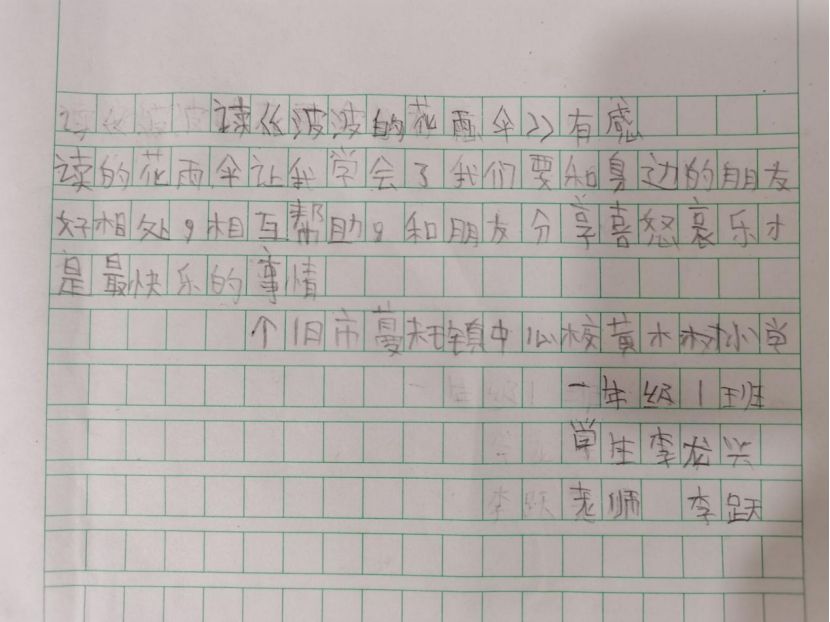 读《波波的花雨伞》有感
读的花雨伞让我学会了我们要和身边的朋友
好相处，相互帮助，和朋友分享喜怒哀乐才
是最快乐的事情
个旧市蔓耗镇中心校黄木树小学
一年级1班
学生李龙兴
老师 李跃